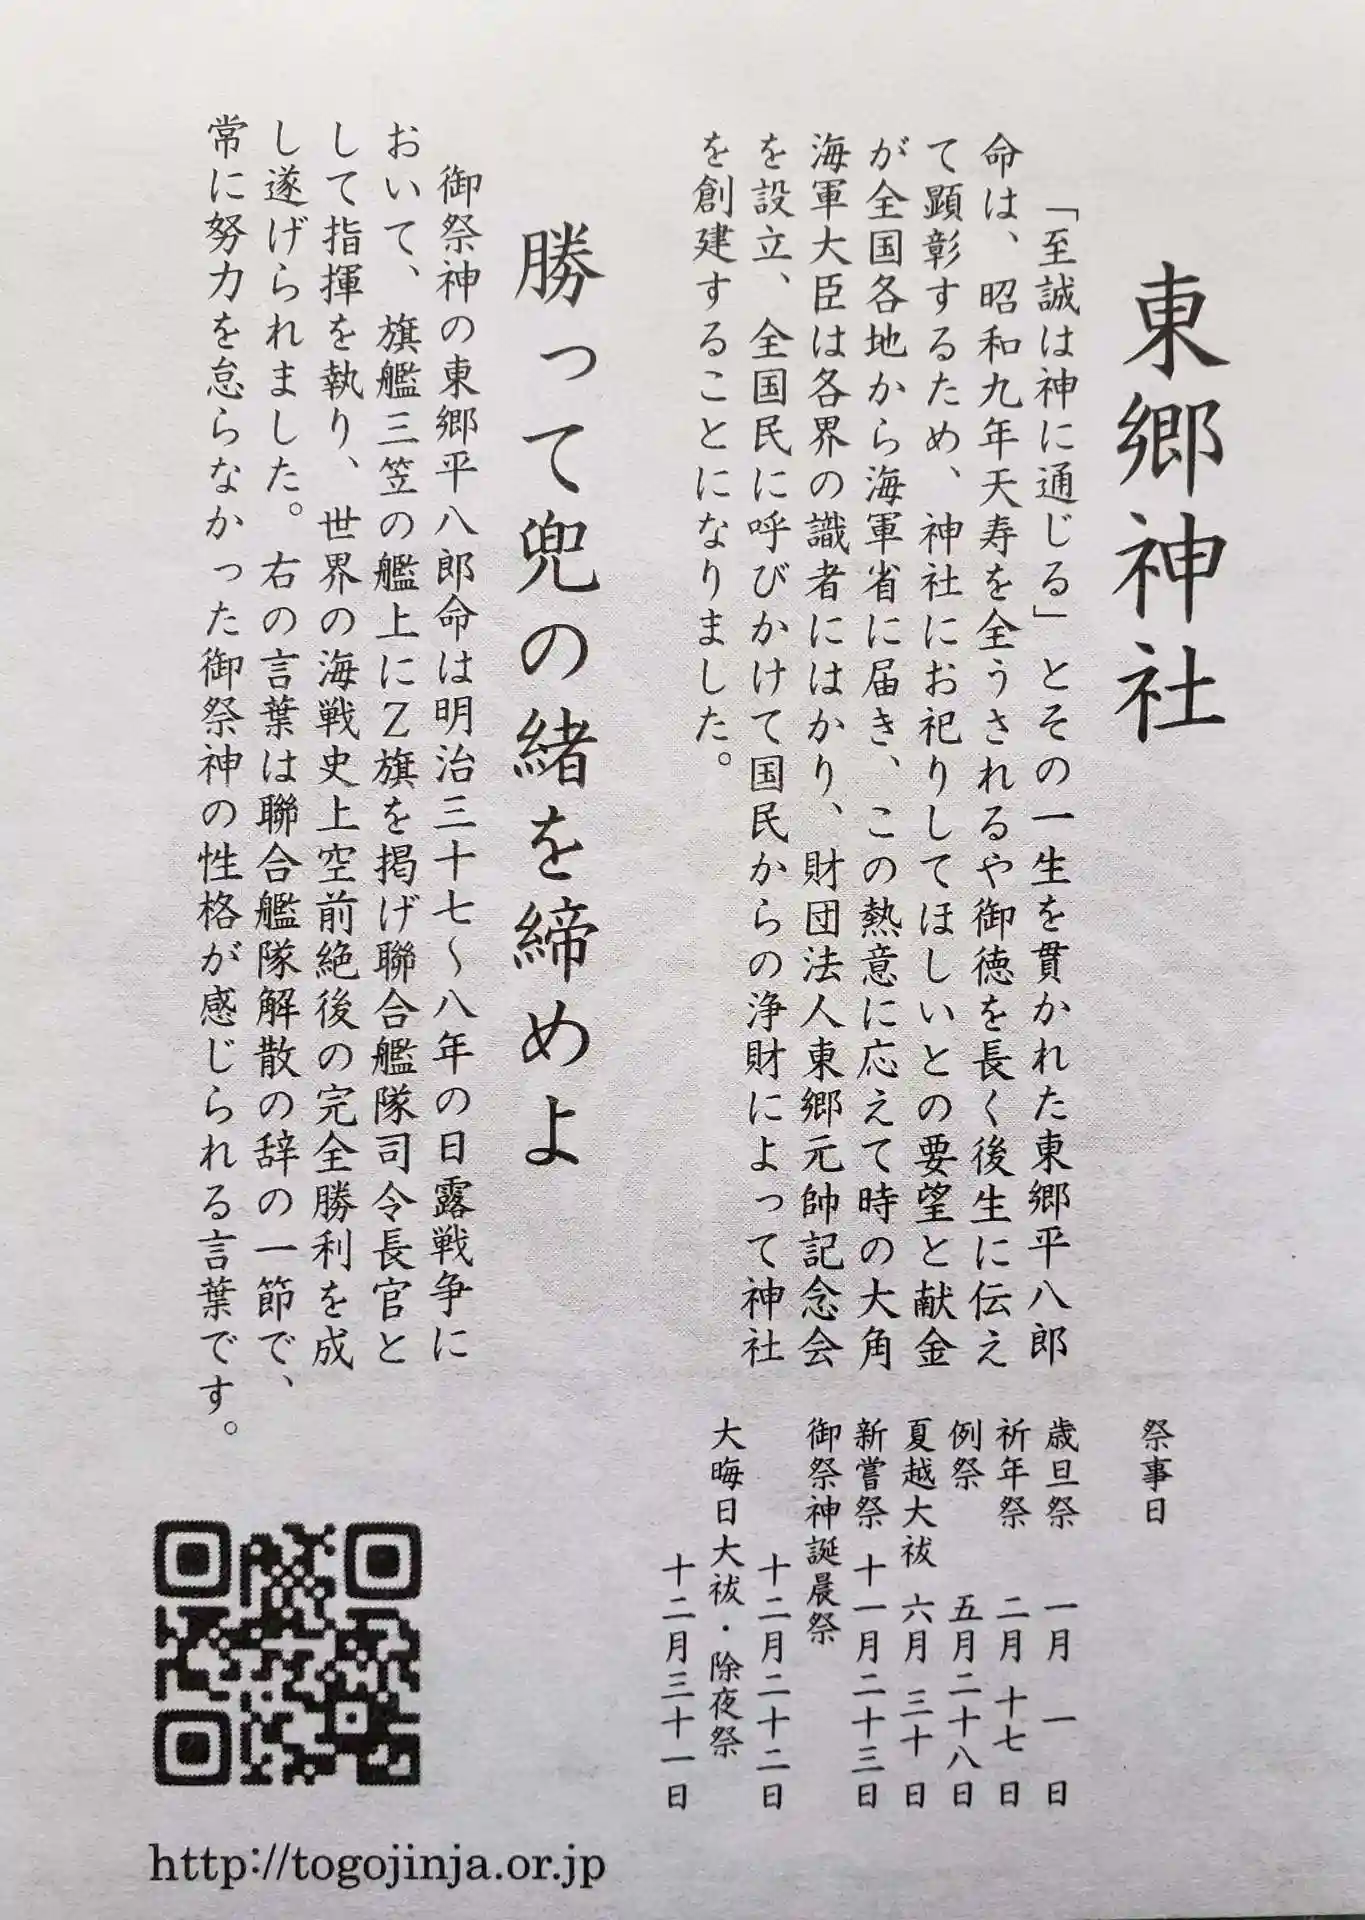 東郷神社
「至誠は神に通じる」とその一生を貫かれた東郷平八郎
命は、昭和九年天寿を全うされるや御徳を長く後生に伝え
て顕彰するため、神社にお祀りしてほしいとの要望と献金
が全国各地から海軍省に届き、この熱意に応えて時の大角
海軍大臣は各界の識者にはかり、財団法人東郷元帥記念会
を設立、全国民に呼びかけて国民からの浄財によって神社
を創建することになりました。
勝って兜の緒を締めよ
御祭神の東郷平八郎命は明治三十七～八年の日露戦争に
おいて、旗艦三笠の艦上にZ旗を掲げ聯合艦隊司令長官と
して指揮を執り、世界の海戦史上空前絶後の完全勝利を成
し遂げられました。右の言葉は聯合艦隊解散の辞の一節で、
常に努力を怠らなかった御祭神の性格が感じられる言葉です。
祭事日
歳旦祭 一月 一 日
祈年祭 二月 十七 日
例祭 五月二十八日
夏越大祓 六月 三十 日
新嘗祭 十一月二十三日
御祭神誕辰祭
十二月二十二日
大晦日大祓・除夜祭
十二月三十一日
http://togojinja.or.jp